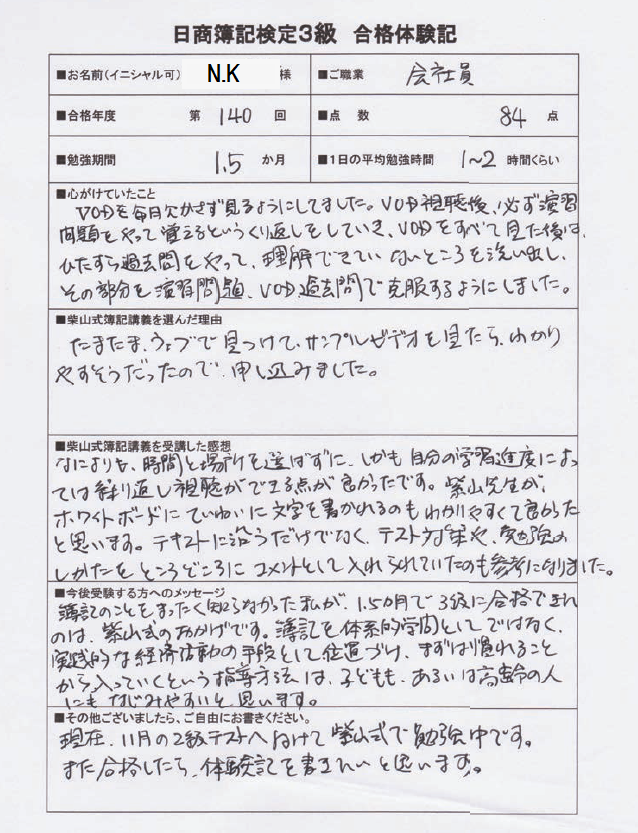 日商簿記検定3級 合格体験記
■お名前(イニシャル可) N.K 様 ■ご職業 会社員
■合格年度 第 140 回 ■点 数 84 点
■勉強期間 1.5 か月 ■1日の平均勉強時間 1~2 時間くらい
■心がけていたこと
VODを毎日欠かさず見るようにしてました。VOD視聴後、必ず演習
問題をやって覚えるというくり返しをしていき、VODをすべて見た後は、
ひたすら過去問をやって、理解できていないところを洗い出し、
その部分を演習問題、VOD、過去問で克服するようにしました。
■柴山式簿記講義を選んだ理由
たまたま、ウェブで見つけて、サンプルビデオを見たら、わかり
やすそうだったので、申し込みました。
■柴山式簿記講義を受講した感想
なによりも、時間と場所を選ばずに、しかも自分の学習進度によっ
ては繰り返し視聴ができる点が良かったです。柴山先生が、
ホワイトボードにていねいに文字を書かれるのもわかりやすくて良かった
と思います。テキストに沿うだけでなく、テスト対策や、勉強の
しかたをところどころにコメントとして入れられていたのも参考になりました。
■今後受験する方へのメッセージ
簿記のことをまったく知らなかった私が、1.5カ月で3級に合格できた
のは、柴山式のおかげです。簿記を体系的学問としてではなく、
実践的な経済活動の手段として位置づけ、まずは慣れること
から入っていくという指導方法は、子どもも、あるいは高齢の人
にもなじみやすいと思います。
■その他ございましたら、ご自由にお書きください。
現在、11月の2級テストへ向けて柴山式で勉強中です。
また合格したら、体験記を書きたいと思います。